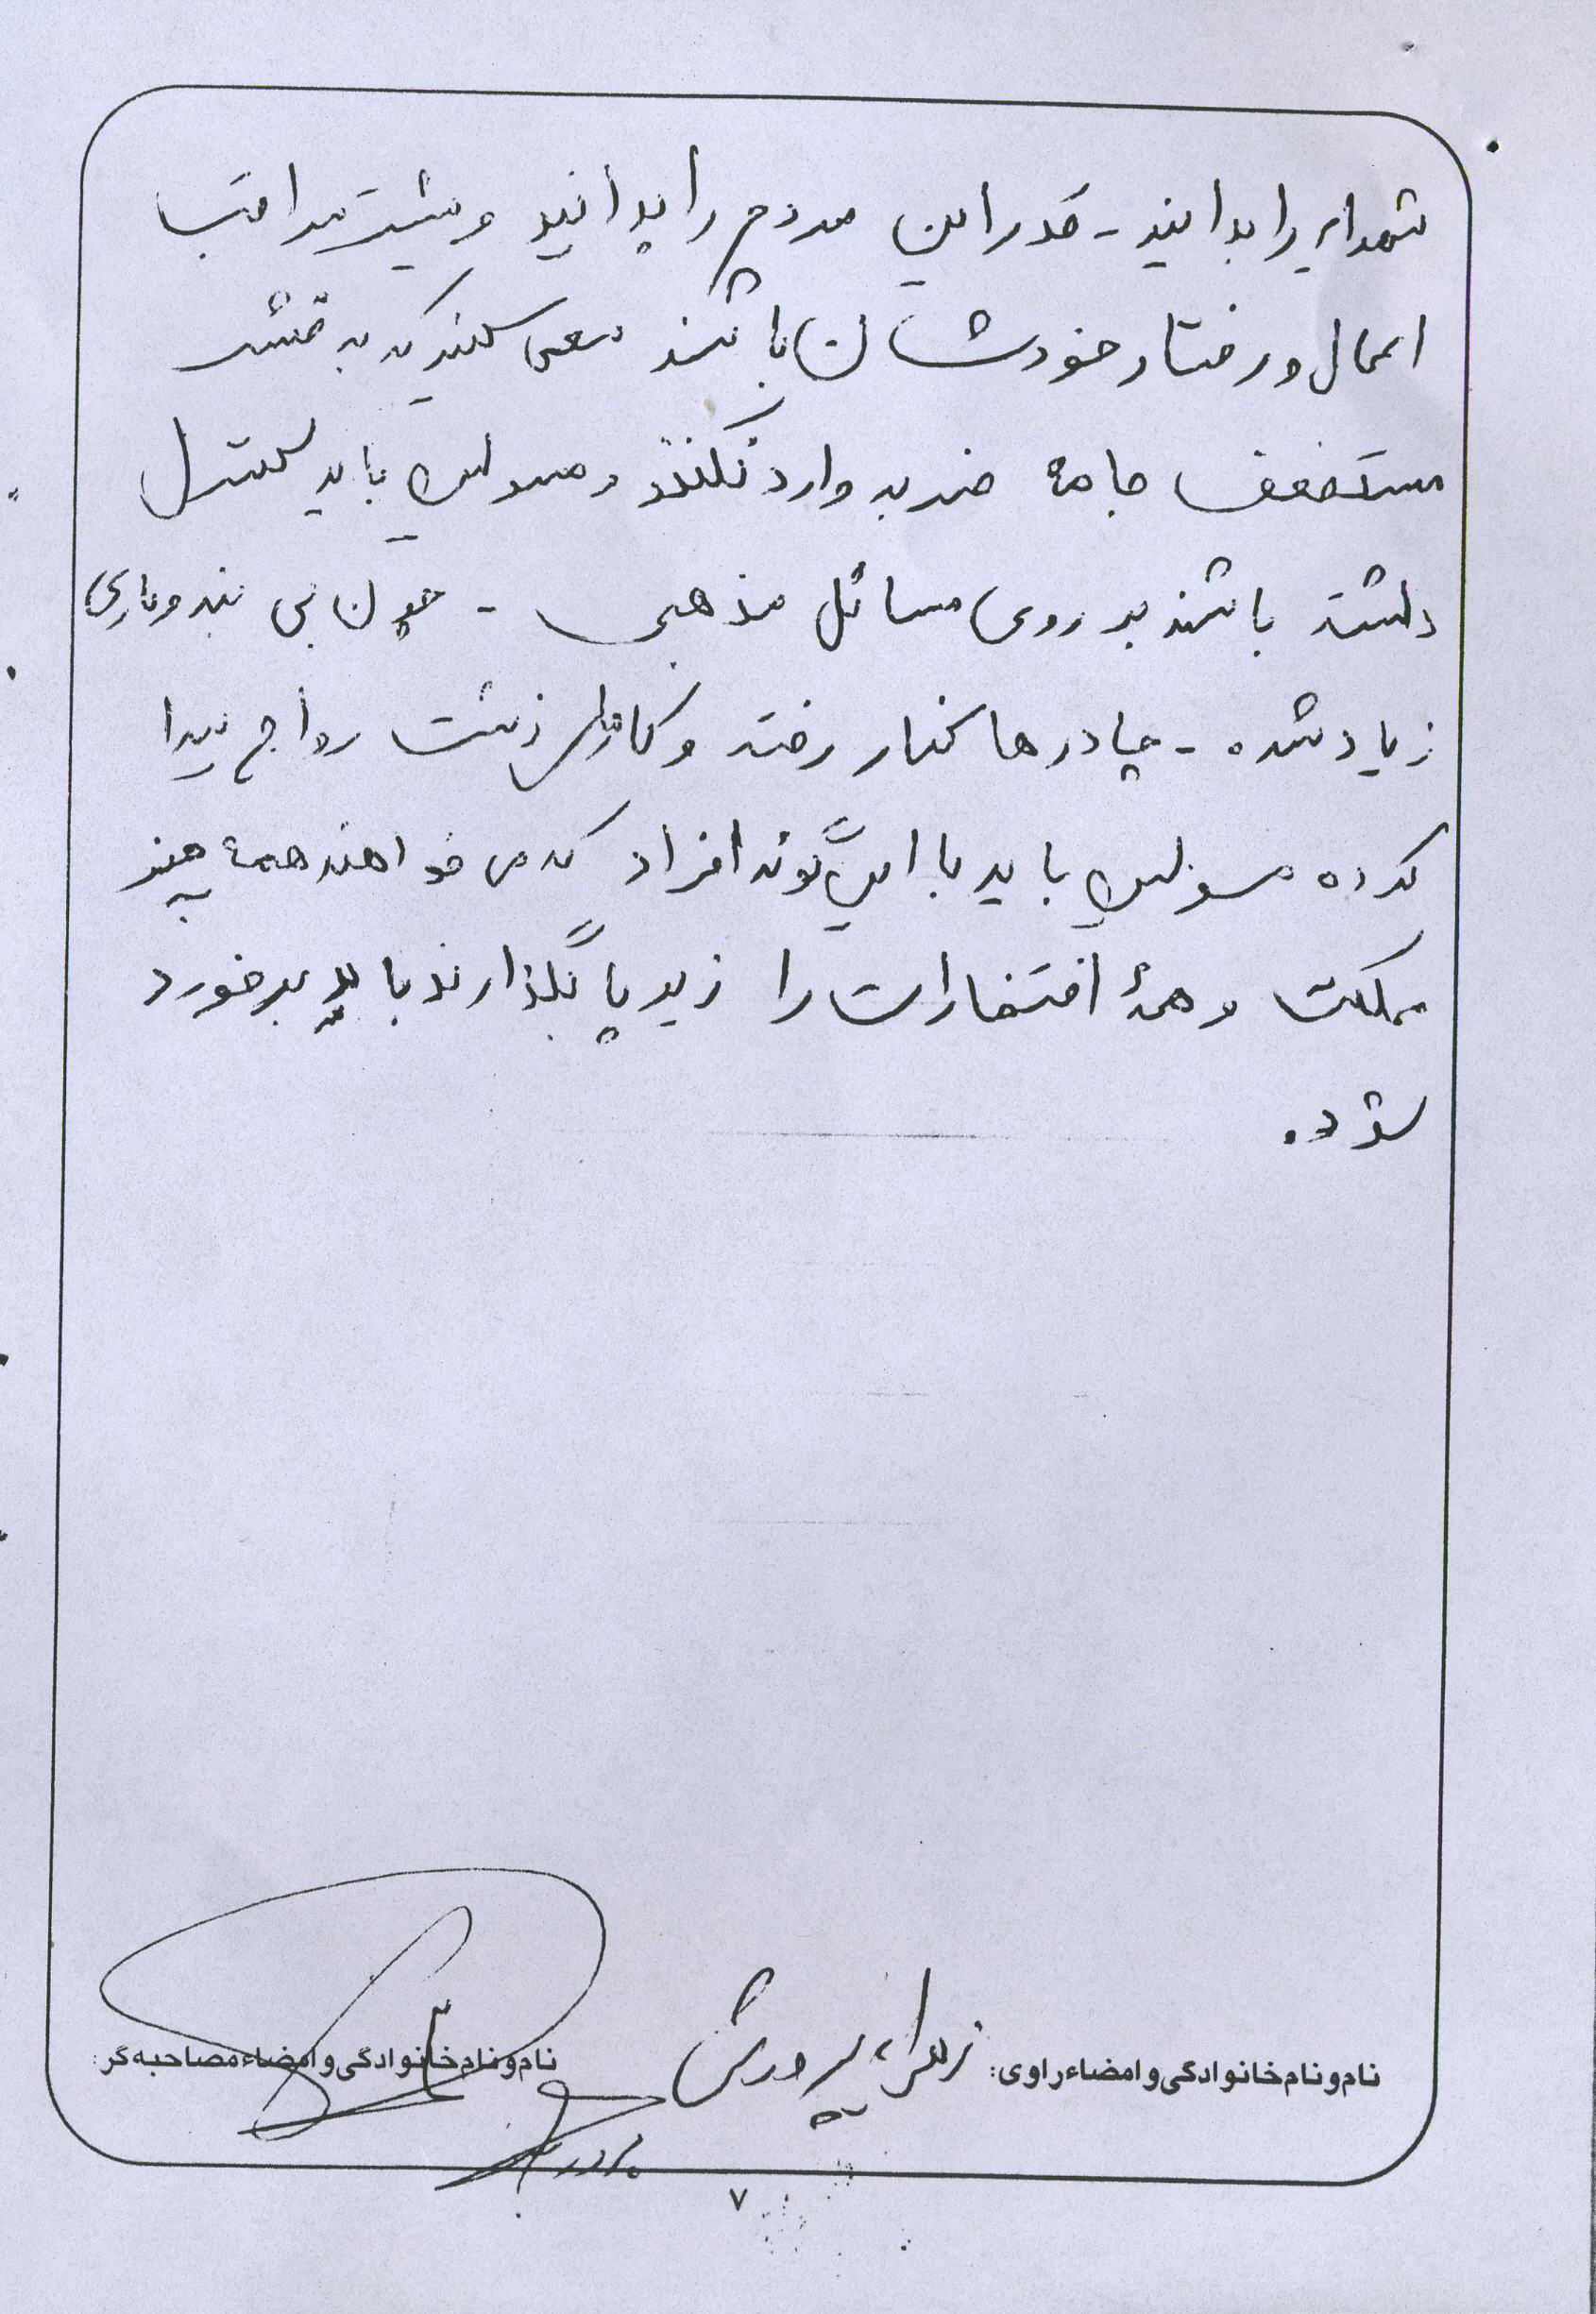 شهدا را بدانید - قدر این مردم را بدانید و بیشتر مراقب
اعمال و رفتار خودشان باشند سعی کنند که به قشر
مستضعف جامعهٔ ضربه وارد نکنند و مسولین باید کنترل
داشته باشند بر روی مسائل مذهبی - چون بی بندوباری
زیاد شده - چادرها کنار رفته و کارهای زشت رواج پیدا
کرده مسولین باید با این گونه افراد که می خواهند همهٔ چیز
مملکت و همهٔ افتخارات را زیر پا بگذارند باید برخورد
شود.
نام و نام خانوادگی و امضاء راوی: زهراء پرورش
نام و نام خانوادگی و امضاء مصاحبه گر:
۷